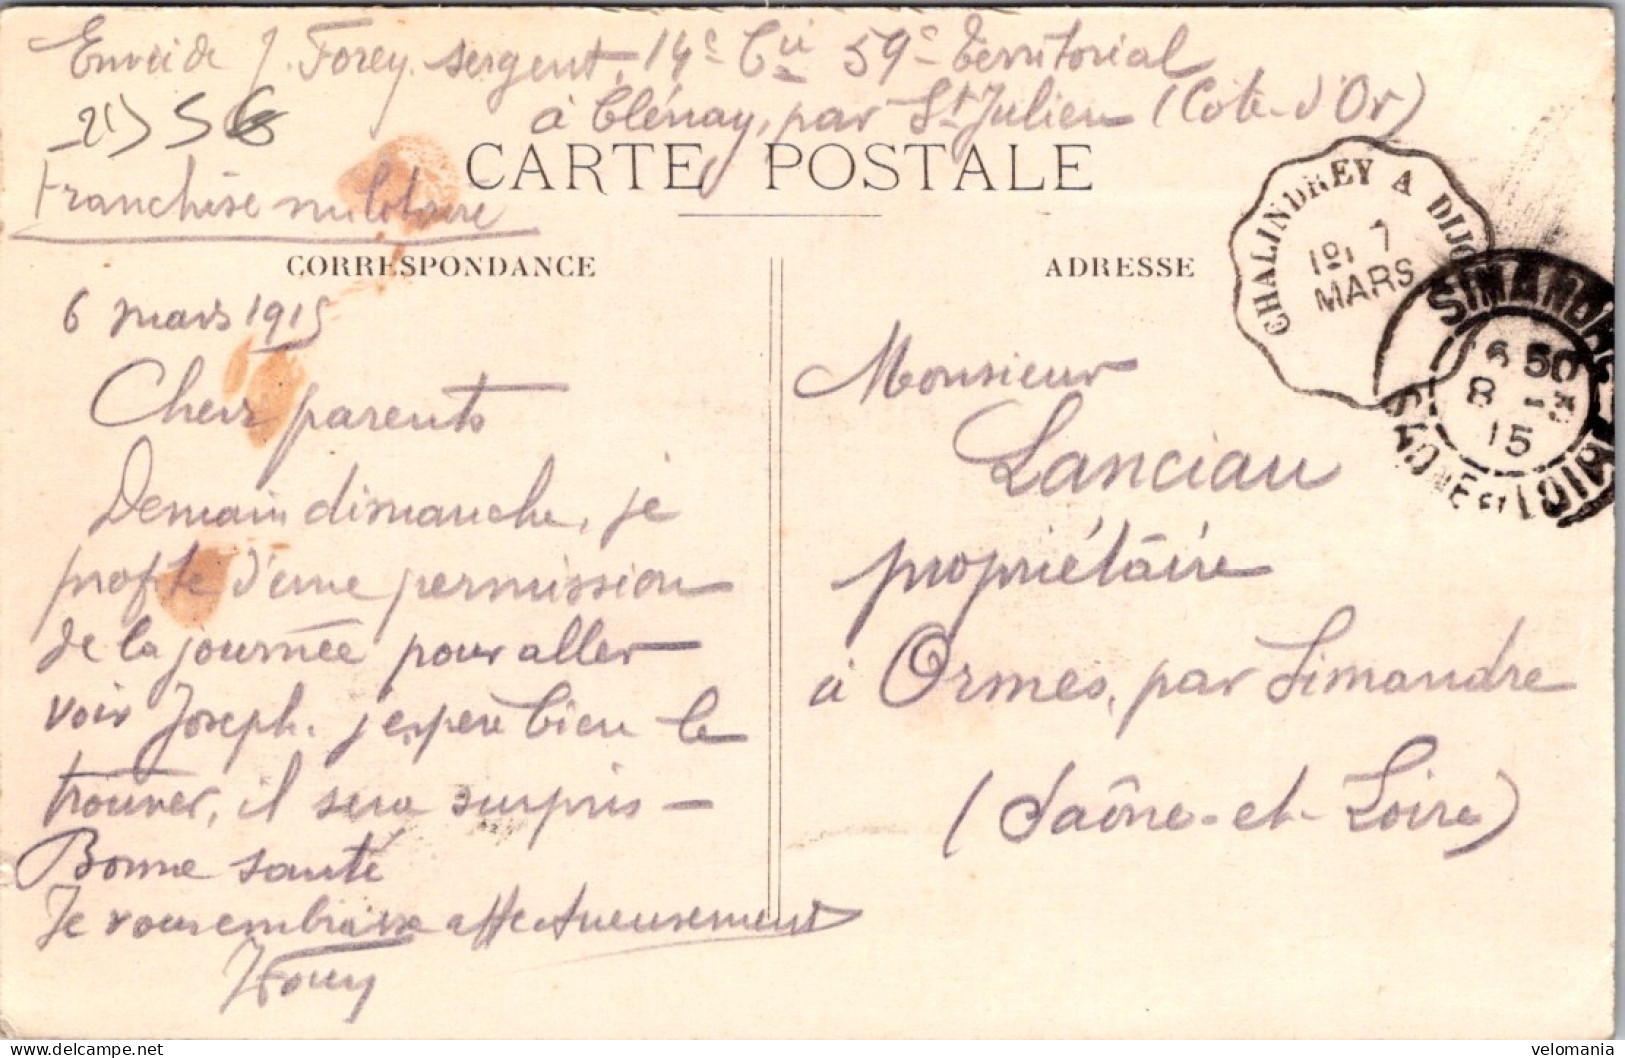 Envoi de J. Forey sergent, 14e Cie 59e Territorial
à Clénay, par St Julien (Côte-d'Or)
Franchise militaire
CARTE POSTALE
CORRESPONDANCE
ADRESSE
CHALINDREY A DIJO
7
MARS
SIMANDRE
6 50
8 - 3
15
SAONE ET LOIRE
6 mars 1915
Chers parents
Demain dimanche, je
profite d'une permission
de la journée pour aller
voir Joseph. j'espère bien le
trouver, il sera surpris —
Bonne santé
Je vous embrasse affectueusement
JForey
Monsieur
Lanciau
propriétaire
à Ormes, par Simandre
(Saône-et-Loire)
velomania
delcampe.net